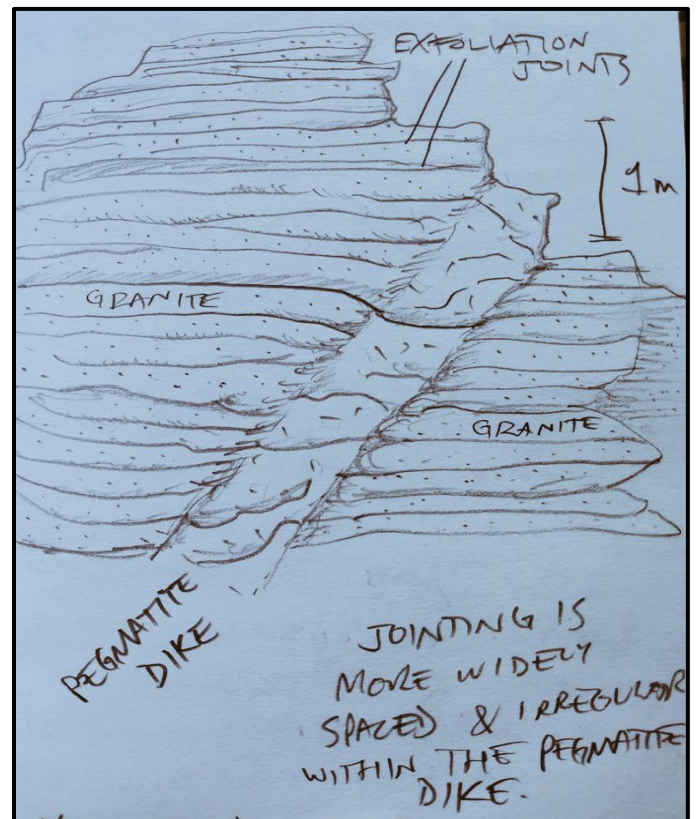 EXFOLIATION
JOINTS
1m
GRANITE
GRANITE
PEGMATITE
DIKE
JOINTING IS
MORE WIDELY
SPACED & IRREGULAR
WITHIN THE PEGMATITE
DIKE.